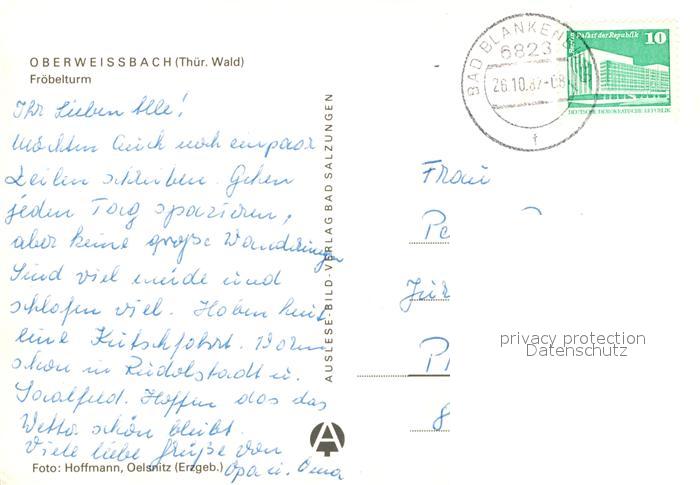 OBERWEISSBACH (Thür. Wald)
Fröbelturm
Ihr Lieben Alle!
Möchten Euch noch ein paar
Zeilen schreiben. Gehen
jeden Tag spazieren,
aber keine große Wanderungen
Sind viel müde und
schlafen viel. Haben heut
eine Kutschfahrt. Waren
schon in Rudolstadt u.
Saalfeld. Hoffen das das
Wetter schön bleibt.
Viele liebe Grüße von
Opa u. Oma
Foto: Hoffmann, Oelsnitz (Erzgeb.)
AUSLESE-BILD-VERLAG BAD SALZUNGEN
BAD BLANKEN
6823
26.10.87-08
t
Berlin Palast der Republik 10
DEUTSCHE DEMOKRATISCHE REPUBLIK
Frau
Pe
Jür
8
privacy protection
Datenschutz